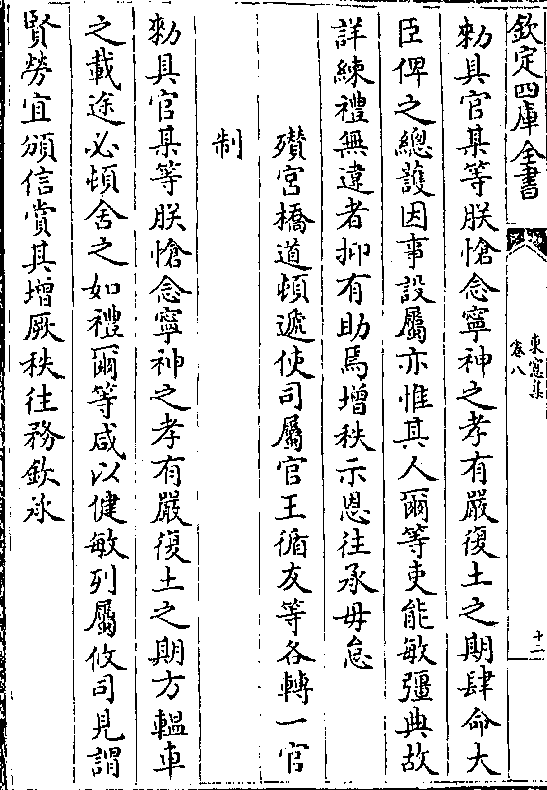 欽定四庫全書
東窻集
卷八
十二
勅具官某等朕愴念寧神之孝有嚴復土之期肆命大
臣俾之總護因事設屬亦惟其人爾等吏能敏彊典故
詳練禮無違者抑有助焉增秩示恩往承毋怠
殯宮橋道頓遞使司屬官王循友等各轉一官
制
勅具官某等朕愴念寧神之孝有嚴復土之期方轀車
之載途必頓舍之如禮爾等咸以健敏列屬攸司見謂
賢勞宜頒信賞其增厥秩往務欽承